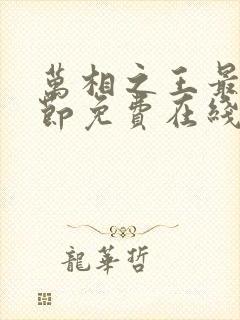 萬相之王最
節免費在綫
龍華哲